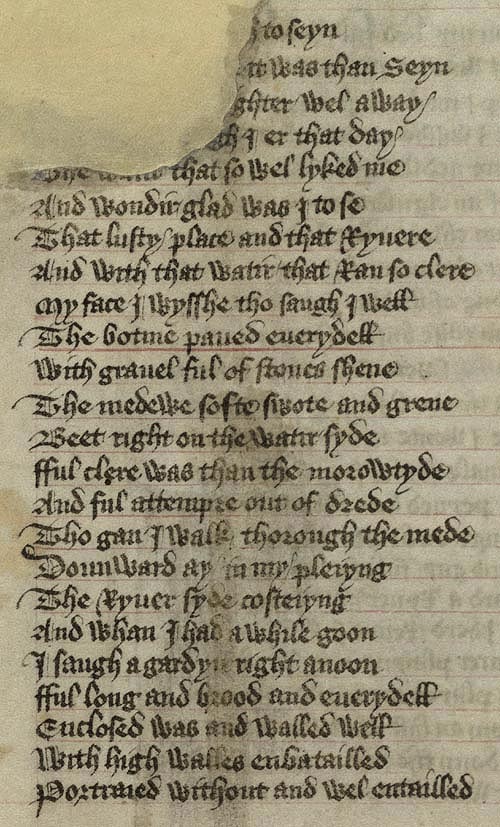 to seyn
it was than Seyn
ghter wel away
gh I er that day
The watir that so wel lyked me
And wondir glad was I to se
That lusty place and that Ryuere
And with that watir that Ran so clere
My face I wysshe tho saugh I well
The botme paued euerydell
With grauel ful of stones shene
The medewe softe swote and grene
Beet right on the watir syde
Fful clere was than the morowtyde
And ful attempre out of drede
Tho gan I walk thorough the mede
Dounward ay in my pleiyng
The Ryuer syde costeiyng
And whan I had a while goon
I saugh a gardyn right anoon
Fful long and brood and euerydell
Enclosed was and walled well
With high walles enbatailled
Portraied without and wel entailled